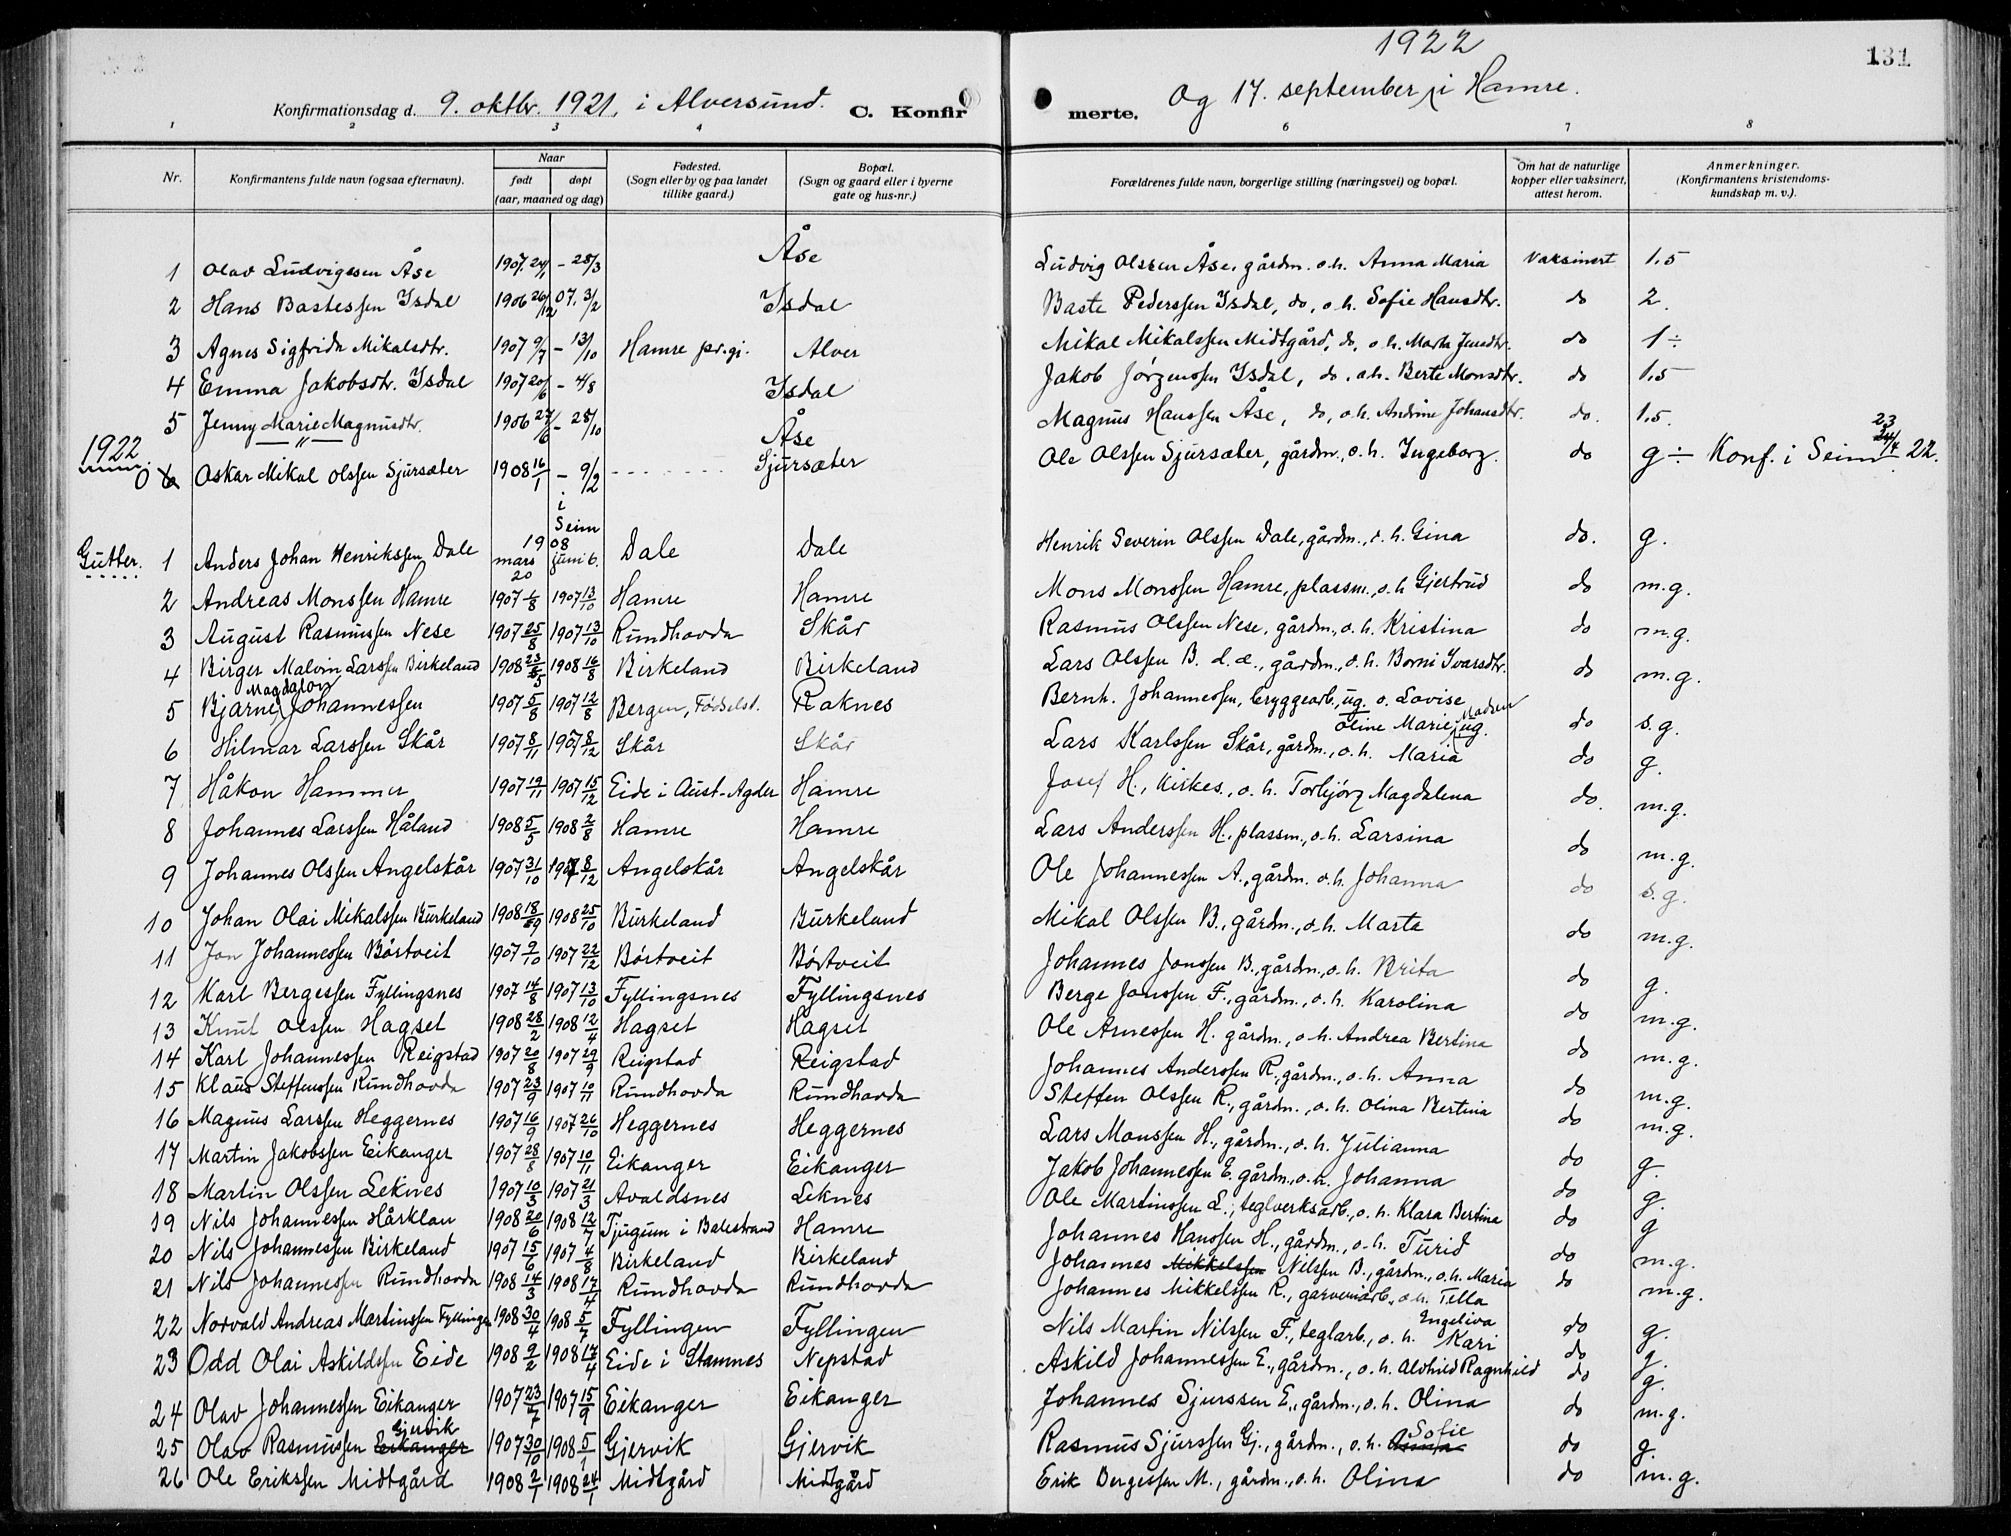 1922
131
Konfirmationsdag d. 9. oktbr. 1921, i Alversund. C. Konfir merte. Og 17. september i Hamre.
1 2 3 4 6 7 8
Nr. Konfirmantens fulde navn (ogsaa efternavn). Naar født døpt (aar, maaned og dag) Fødested. (Sogn eller by og paa landet tillike gaard.) Bopæl. (Sogn og gaard eller i byerne gate og hus-nr.) Forældrenes fulde navn, borgerlige stilling (næringsvei) og bopæl. Om hat de naturlige kopper eller vaksinert, attest herom. Anmerkninger. (Konfirmantens kristendoms-kundskap m. v.).
1 Olav Ludvigssen Åse 1907 24/1 - 28/3 Åse Ludvig Olssen Åse, gårdm. o.h. Anna Maria vaksinert 1.5
2 Hans Bastessen Isdal 1906 26/12 07. 3/2 Isdal Baste Pederssen Isdal, do, o.h. Sofie Hansdtr. do 2.
3 Agnes Sigfrida Mikalsdtr. 1907 9/7 - 13/10 Hamre pr.gj. Alver Mikal Mikalssen Midtgård, do, o.h. do 1÷
4 Emma Jakobsdtr. Isdal 1907 20/6 - 4/8 Isdal Jakob Jørgenssen Isdal, do. o.h. Berte Monsdtr. do 1.5
5 Jenny Marie Magnusdtr. 1906 27/6 - 28/10 Åse Magnus Hanssen Åse, do, o.h. Andrine Johansdtr. do. 1.5.
1922
0 6 Oskar Mikal Olssen Sjursæter 1908 16/1 - 9/2 i Seim Sjursæter Ole Olssen Sjursæter, gårdm., o.h. Ingeborg. do g÷ Konf. i Seim 23/4 22.
Gutter. 1 Anders Johan Henrikssen Dale 1908 mars 20 juni 6. Dale Dale Henrik Severin Olssen Dale, gårdm., o.h. Gina do. g.
2 Andreas Monssen Hamre 1907 1/8 1907 13/10 Hamre Hamre Mons Monssen Hamre, plassm., o.h Gjertrud do m.g.
3 August Rasmussen Nese 1907 25/8 1907 13/10 Rundhovda Skår Rasmus Olssen Nese, gårdm., o.h. Kristina do m.g.
4 Birger Malvin Larssen Birkeland 1908 23/5 1908 16/8 Birkeland Birkeland Lars Olssen B. d.e., gårdm., o.h. Borni Ivarsdtr. do m.g.
5 Bjarne Magdalon Johannessen 1907 5/8 1907 12/8 Bergen, Fødselst. Raknes Bernh. Johannessen, bryggearb., ug. o. Lovise Oline Marie Madsen ug. do s.g.
6 Hilmar Larssen Skår 1907 8/11 1907 8/12 Skår Skår Lars Karlssen Skår, gårdm., o.h. Maria do g.
7 Håkon Hammer 1907 19/11 1907 15/12 Eide i Aust-Agder Hamre Josef H., kirkes., o.h. Torbjørg Magdalena do. m.g.
8 Johannes Larssen Håland 1908 5/5 1908 2/8 Hamre Hamre Lars Anderssen H., plassm., o.h. Larsina do m.g.
9 Johannes Olssen Angelskår 1907 31/10 1907 8/12 Angelskår Angelskår Ole Johannessen A., gårdm. o.h. Johanna do s.g.
10 Johan Olai Mikalssen Burkeland 1908 18/9 1908 25/10 Burkeland Burkeland Mikal Olssen B., gårdm., o.h. Marta do m.g.
11 Jon Johannessen Børtveit 1907 9/10 1907 22/12 Børtveit Børtveit Johannes Jonssen B., gårdm., o.h. Brita do g.
12 Karl Bergessen Fyllingsnes 1907 14/8 1907 13/10 Fyllingsnes Fyllingsnes Berge Jonssen F., gårdm., o.h. Karolina do m.g.
13 Knut Olssen Hagset 1908 28/2 1908 12/4 Hagset Hagset Ole Arnessen H. gårdm., o.h. Andrea Bertina do m.g.
14 Karl Johannessen Reigstad 1907 20/8 1907 29/9 Reigstad Reigstad Johannes Anderssen R., gårdm., o.h. Anna do m.g.
15 Klaus Steffenssen Rundhovda 1907 23/9 1907 10/11 Rundhovda Rundhovda Steffen Olssen R., gårdm., o.h. Olina Bertina do m.g.
16 Magnus Larssen Heggernes 1907 16/9 1907 26/10 Heggernes Heggernes Lars Monssen H., gårdm., o.h. Julianna do g.
17 Martin Jakobssen Eikanger 1907 28/8 1907 10/11 Eikanger Eikanger Jakob Johannessen E. gårdm., o.h. Johanna do g.
18 Martin Olssen Leknes 1907 10/3 1907 21/3 Avaldsnes Leknes Ole Martinssen L., teglverksarb., o.h. Klara Bertina do g
19 Nils Johannessen Hårklau 1908 20/6 1908 12/7 Tjugum i Balestrand Hamre Johannes Hanssen H., gårdm., o.h. Turid do m.g.
20 Nils Johannessen Birkeland 1907 15/6 1907 4/8 Birkeland Birkeland Johannes Mikkelssen Nilssen B., gårdm., o.h. Maria do m.g.
21 Nils Johannessen Rundhovda 1908 14/3 1908 17/4 Rundhovda Rundhovda Johannes Mikkelssen R., garveriarb., o.h. Tella Engeliva
22 Norvald Andreas Martinssen Fyllingen 1908 30/4 1908 5/7 Fyllingen Fyllingen Nils Martin Nilssen F., teglarb., o.h. Kari do g.
23 Odd Olai Askildssen Eide 1908 9/2 1908 17/4 Eide i Stamnes Nepstad Askild Johannessen E., gårdm., o.h. Alvhild Ragnhild do g.
24 Olav Johannessen Eikanger 1907 23/7 1907 15/9 Eikanger Eikanger Johannes Sjurssen E., gårdm., o.h. Olina do g. do m.g.
25 Olav Rasmussen Eikanger Gjervik 1907 30/10 1908 5/1 Gjervik Gjervik Rasmus Sjurssen Gj., gårdm., o.h. Anna Sofie do g.
26 Ole Erikssen Midtgård 1908 2/1 1908 24/1 Midtgård Midtgård Erik Bergessen M., gårdm., o.h. Olina do m.g.